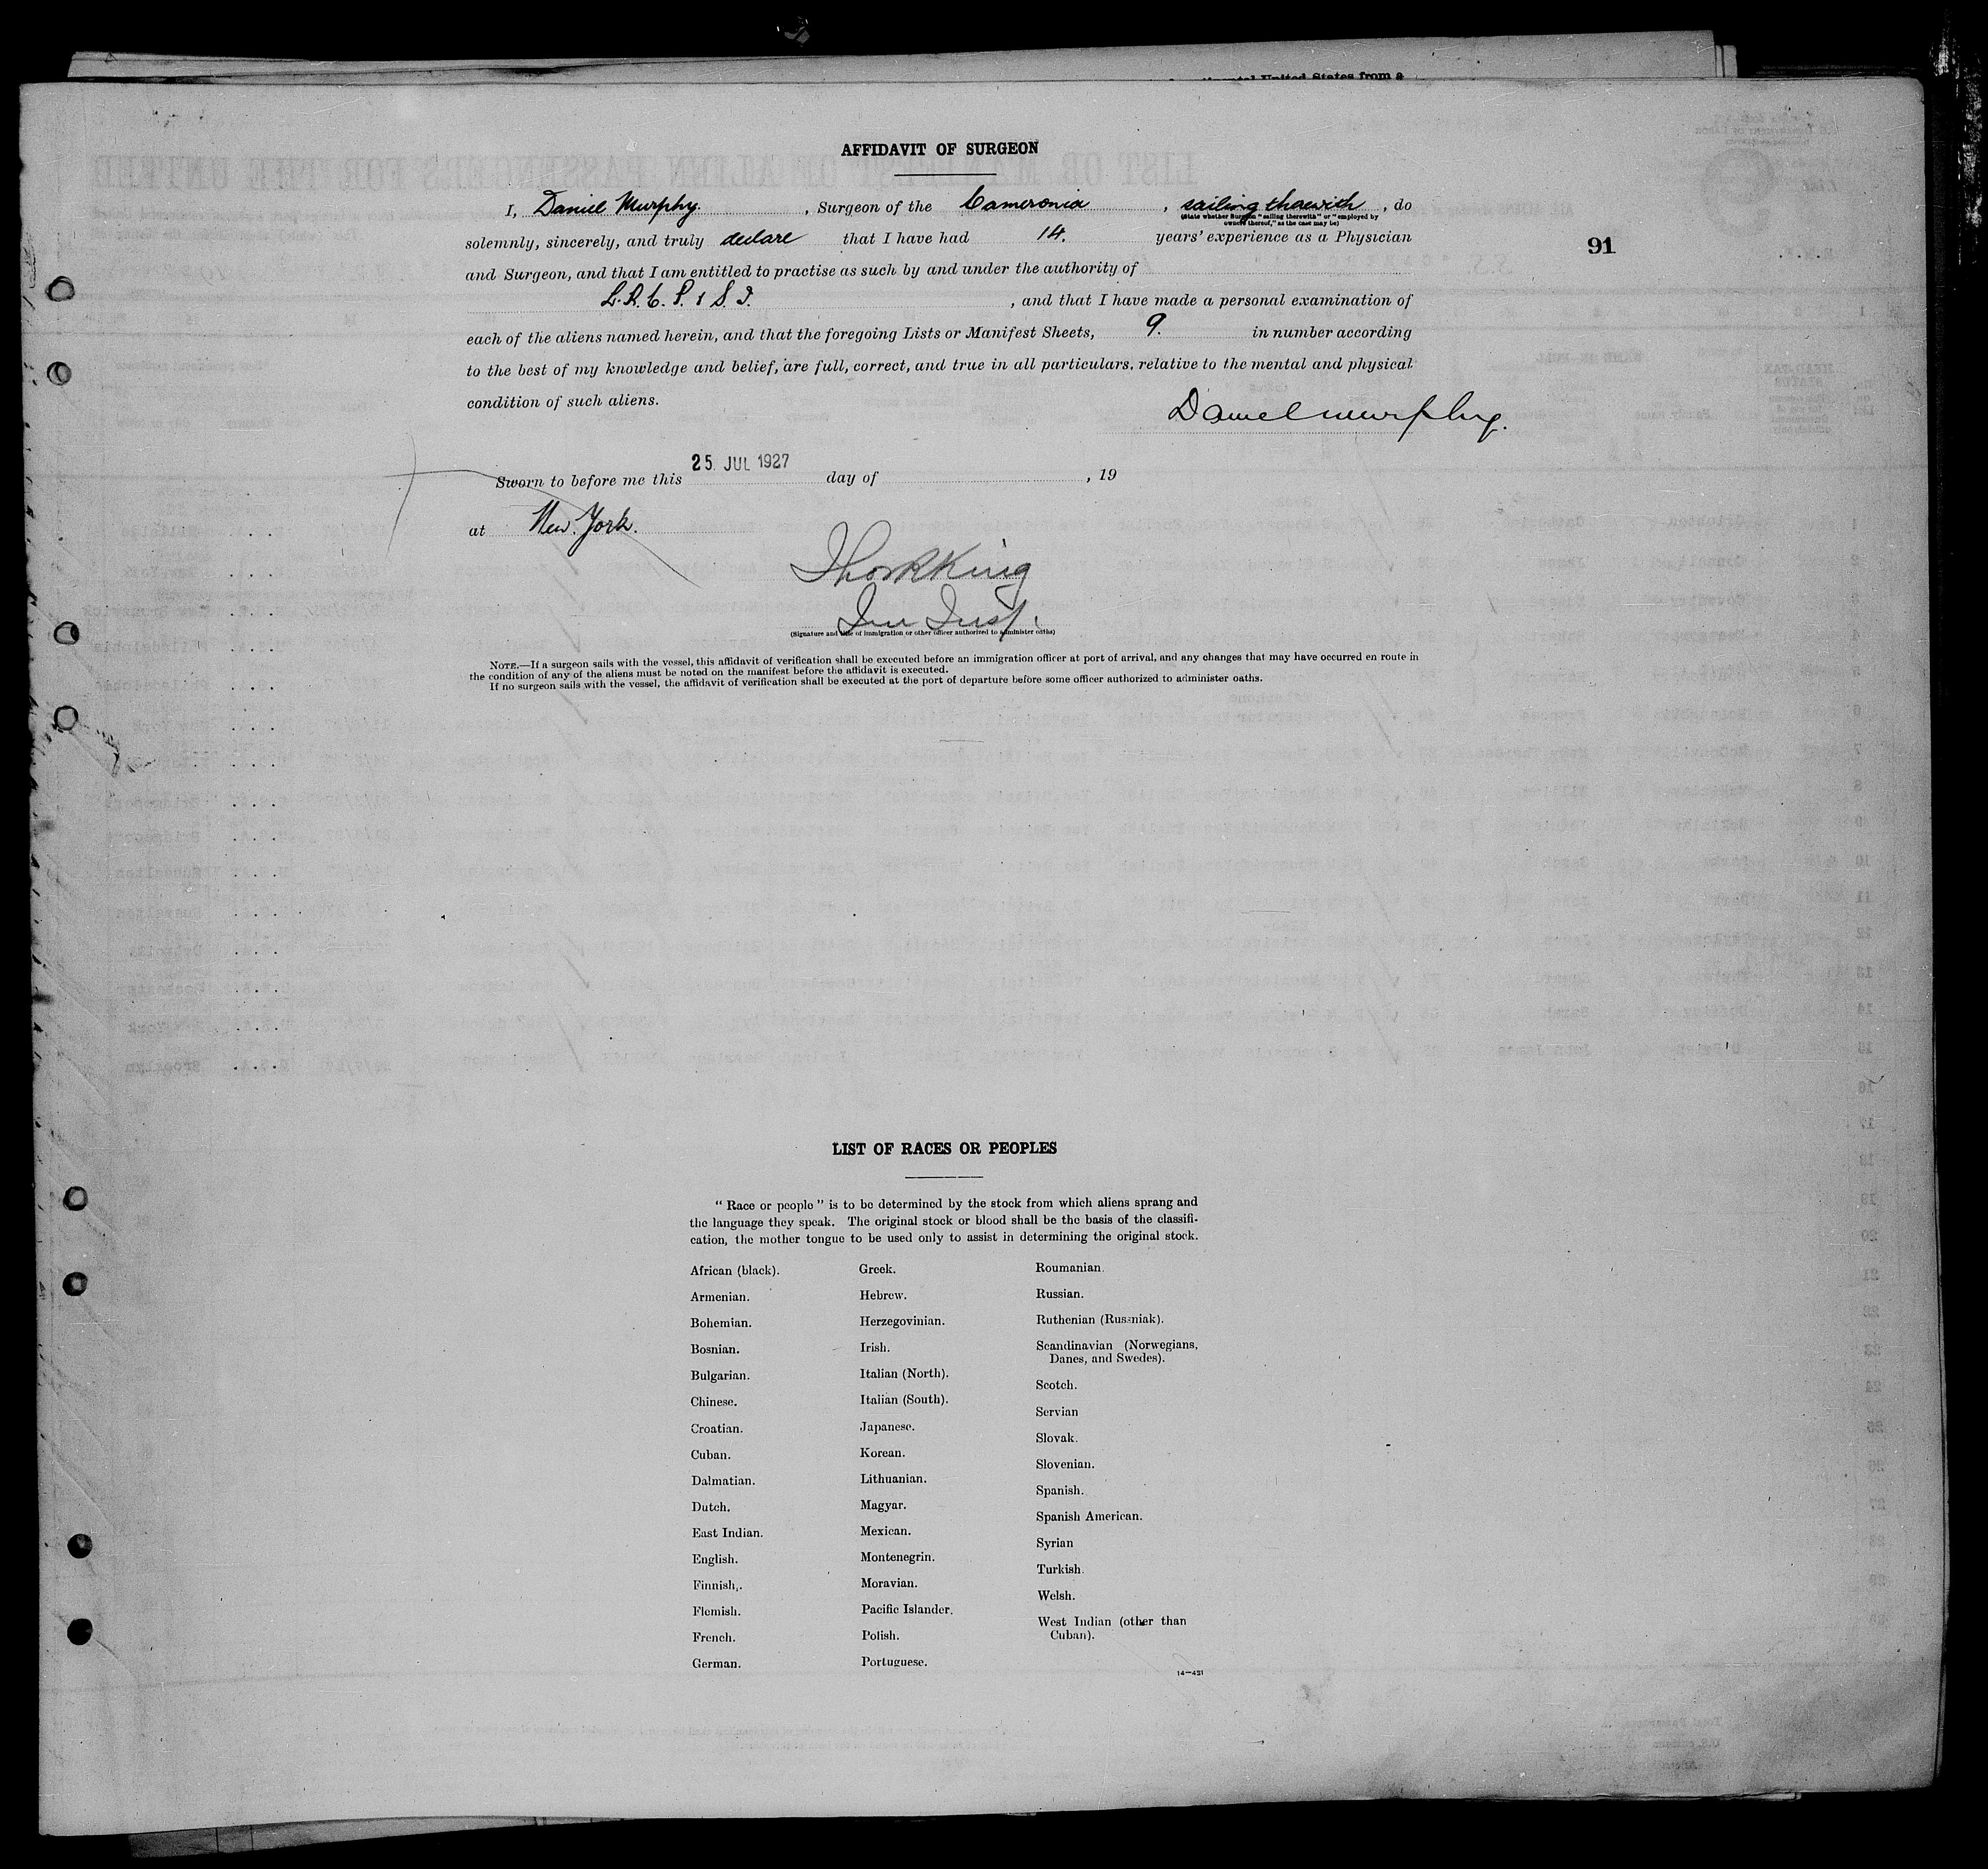 AFFIDAVIT OF SURGEON
I, Daniel Murphy. , Surgeon of the Cameronia , sailing thaewith , do
(State whether Surgeon "sailing therewith" or "employed by
owners thereof," as the case may be)
solemnly, sincerely, and truly declare that I have had 14. years' experience as a Physician
91
and Surgeon, and that I am entitled to practise as such by and under the authority of
L.R.C.P. & S.I. , and that I have made a personal examination of
each of the aliens named herein, and that the foregoing Lists or Manifest Sheets, 9. in number according
to the best of my knowledge and belief, are full, correct, and true in all particulars, relative to the mental and physical
condition of such aliens.
Daniel Murphy.
Sworn to before me this 25. JUL 1927 day of , 19
at New. York.
King
Imm Insp.
(Signature and title of immigration or other officer authorized to administer oaths)
NOTE.—If a surgeon sails with the vessel, this affidavit of verification shall be executed before an immigration officer at port of arrival, and any changes that may have occurred en route in
the condition of any of the aliens must be noted on the manifest before the affidavit is executed.
If no surgeon sails with the vessel, the affidavit of verification shall be executed at the port of departure before some officer authorized to administer oaths.
LIST OF RACES OR PEOPLES
"Race or people" is to be determined by the stock from which aliens sprang and
the language they speak. The original stock or blood shall be the basis of the classifi-
cation, the mother tongue to be used only to assist in determining the original stock.
African (black).
Armenian.
Bohemian.
Bosnian.
Bulgarian.
Chinese.
Croatian.
Cuban.
Dalmatian.
Dutch.
East Indian.
English.
Finnish.
Flemish.
French.
German.
Greek.
Hebrew.
Herzegovinian.
Irish.
Italian (North).
Italian (South).
Japanese.
Korean.
Lithuanian.
Magyar.
Mexican.
Montenegrin.
Moravian.
Pacific Islander.
Polish.
Portuguese.
Roumanian.
Russian.
Ruthenian (Russniak).
Scandinavian (Norwegians,
Danes, and Swedes).
Scotch.
Servian
Slovak.
Slovenian.
Spanish.
Spanish American.
Syrian
Turkish.
Welsh.
West Indian (other than
Cuban).
14—421